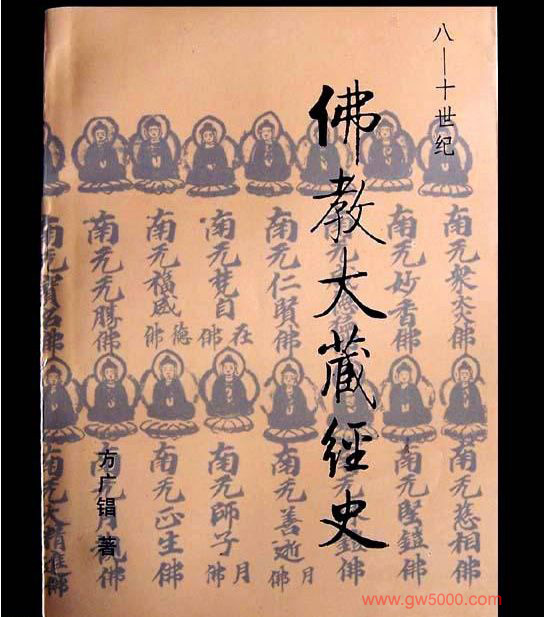 八—十世纪
佛教大藏經史
方广锠 著
南无妙香佛
南无仁賢佛
南无梵自在佛
南无福威德佛
南无无勝佛
南无慈相佛
南无堅鎧佛
南无善逝月佛
南无師子月佛
南无正生佛
南无大精進佛
www.gw5000.com